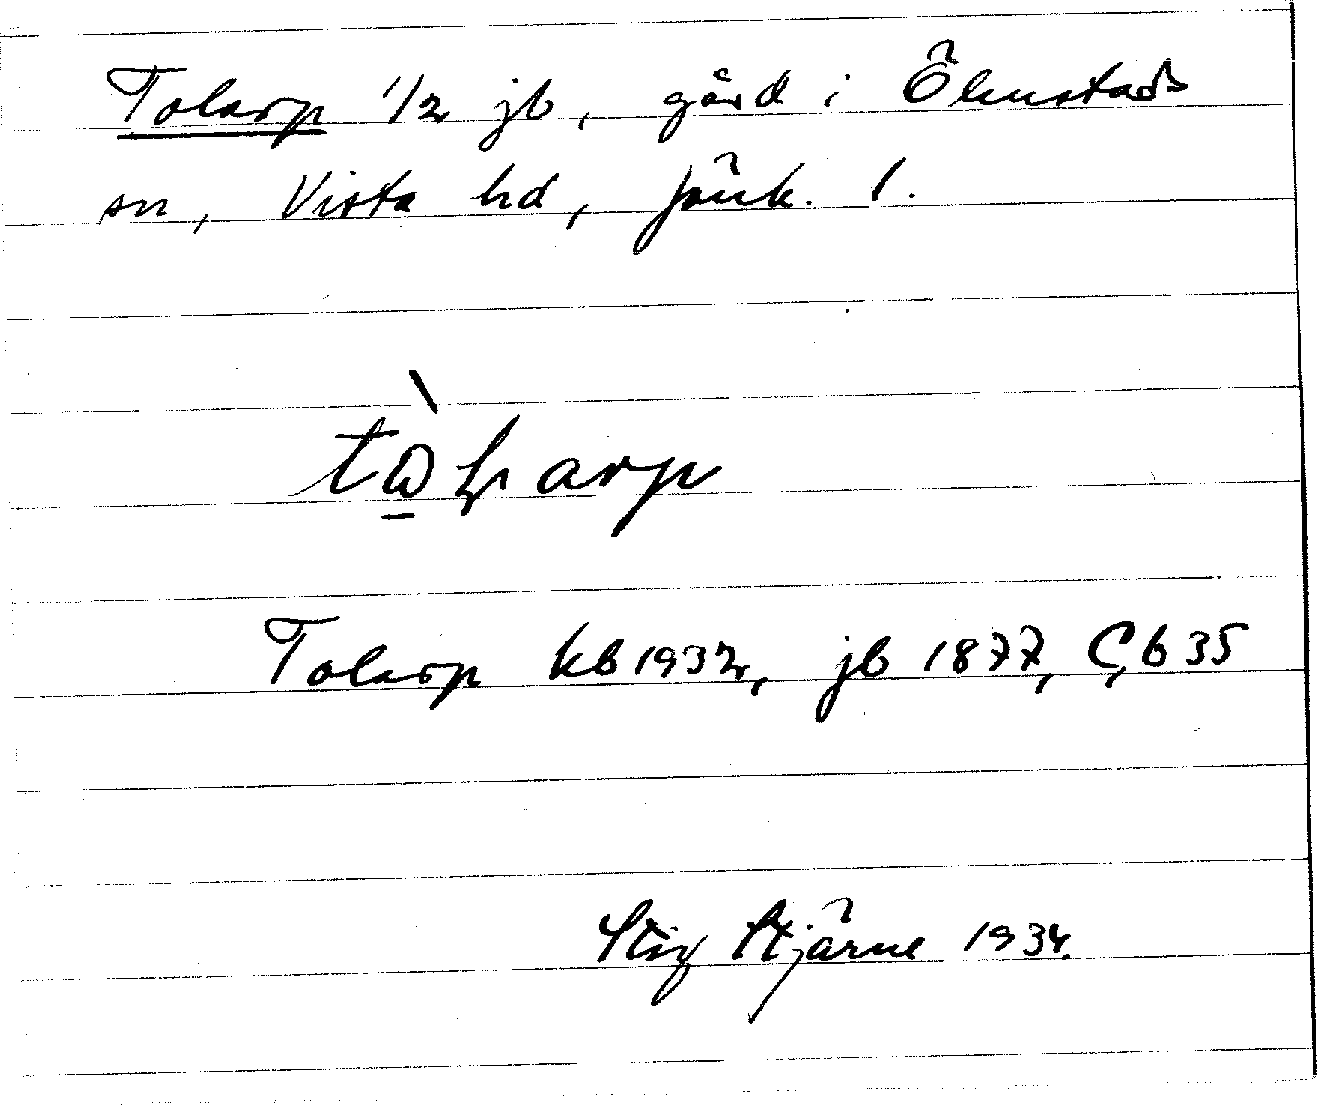 Tolarp 1/2 jb, gård i Ölmstads
sn, Vista hd, Jönk. l.
Tolarp kb 1932, jb 1877, Gb 35
Stig Stjärne 1934.